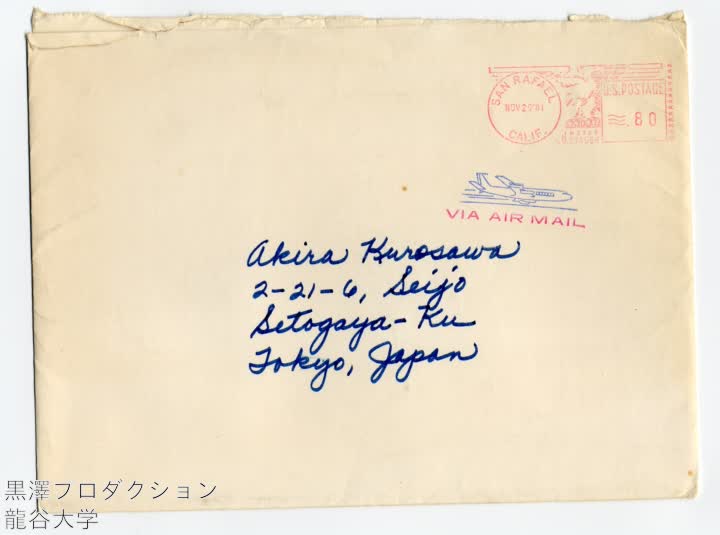 SAN RAFAEL
NOV 29 '81
CALIF.
U.S. POSTAGE
.80
VIA AIR MAIL
Akira Kurosawa
2-21-6, Seijo
Setogaya-Ku
Tokyo, Japan
黒澤フロダクション
龍谷大学